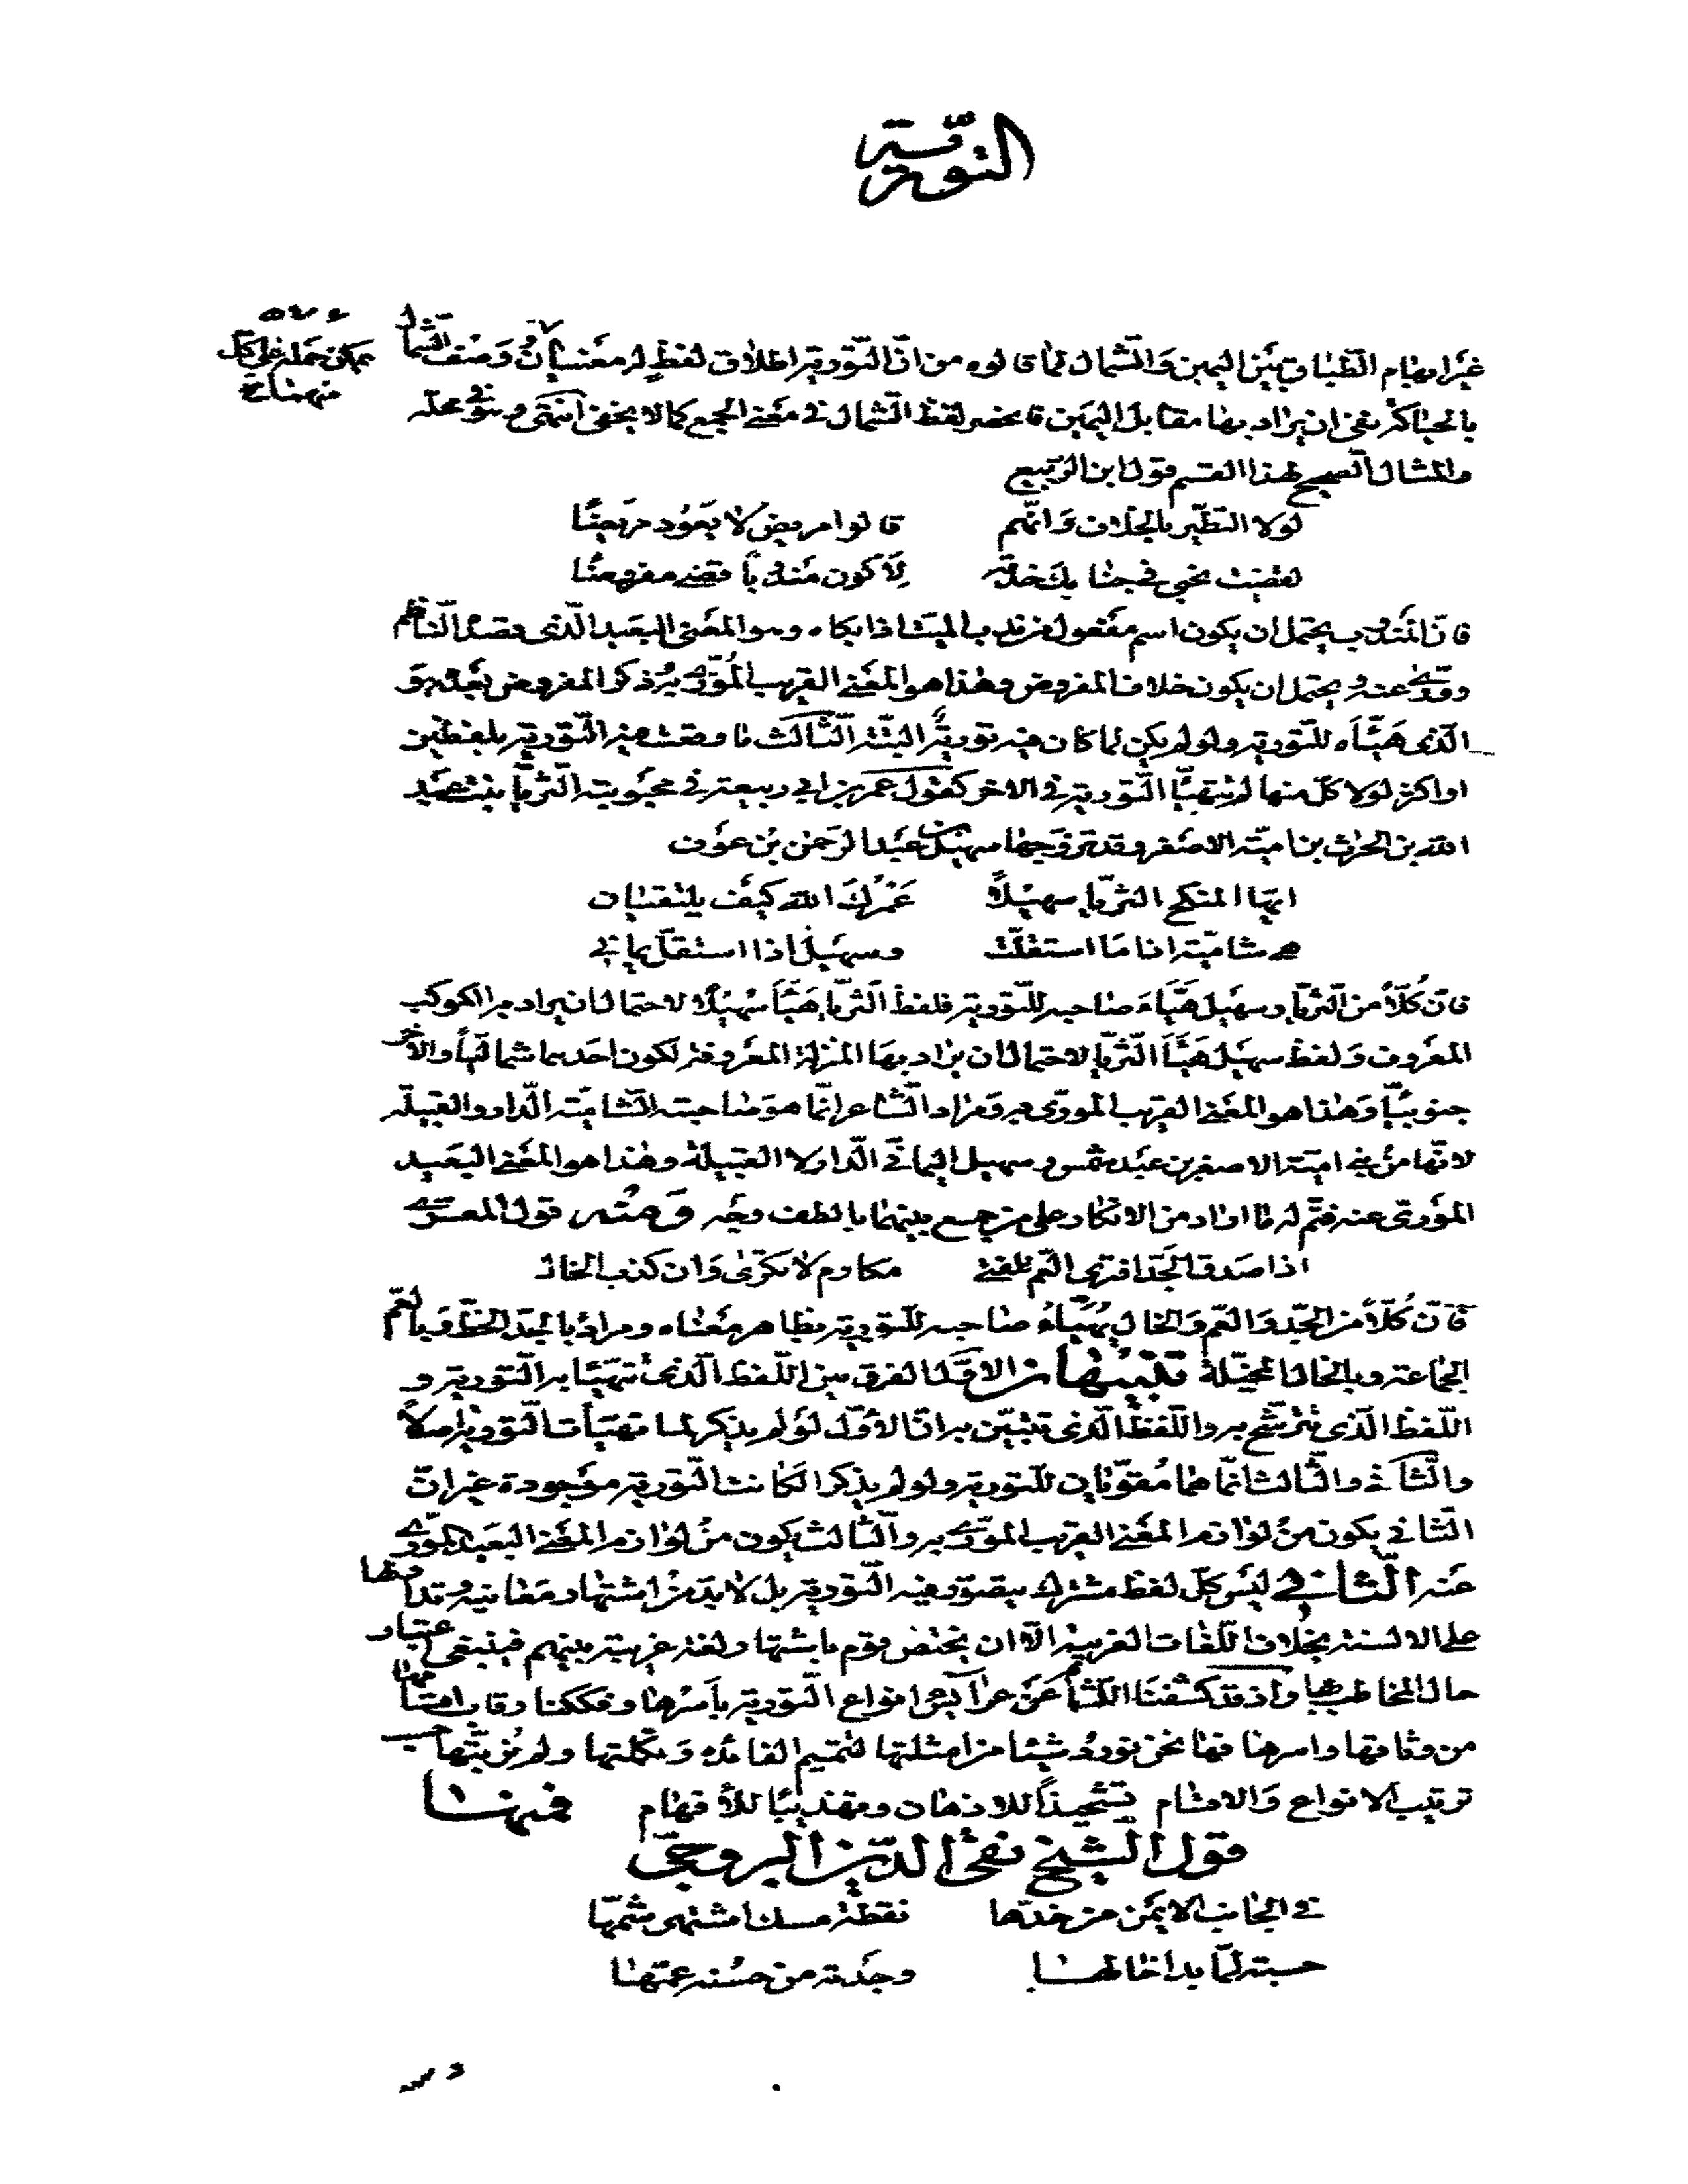 التورية
غير ايهام الطباق بين اليمين والشمال لما قالوه من ان التورية اطلاق لفظ له معنيان ووصف الشمال
يمكن حمله على كل
منهما صح
بالحياكة ينفي ان يراد بها مقابل اليمين فانحصر لفظ الشمال في معنى الجمع كما لا يخفى انتهى وهو في محله
والمثال الصحيح لهذا القسم قول ابن الربيع
لولا التطير بالخلاف وانهم قالوا مريض لا يعود مريضا
لقضيت نحبي في جنابك خدمة لاكون مندوبا قضى مفروضا
فان المندوب يحتمل ان يكون اسم مفعول من ندب الميت اذا بكاه وهو المعنى البعيد الذي قصده الناظم
وورى عنه ويحتمل ان يكون خلاف المفروض وهذا هو المعنى القريب المورى به وذكر المفروض بعده هو
الذي هيأه للتورية ولو لم يكن لما كان فيه تورية البتة الثالث ما وقعت فيه التورية بلفظين
او اكثر لولا كل منها لم تتهيأ التورية في الاخر كقول عمر بن ابي ربيعة في محبوبته الثريا بنت عبد
الله بن الحرث بن امية الاصغر وقد تزوجها سهيل بن عبد الرحمن بن عوف
ايها المنكح الثريا سهيلا عمرك الله كيف يلتقيان
هي شامية اذا ما استقلت وسهيل اذا استقل يماني
فان كلا من الثريا وسهيل هيأ صاحبه للتورية فلفظ الثريا هيأ سهيلا لاحتمال ان يراد به الكوكب
المعروف ولفظ سهيل هيأ الثريا لاحتمال ان يراد بها المنزلة المعروفة لكون احدهما شماليا والآخر
جنوبيا وهذا هو المعنى القريب المورى به ومراد الشاعر انما هو صاحبته الشامية الدار والقبيلة
لانها من بني امية الاصغر بن عبد شمس وسهيل اليماني الدار لا القبيلة وهذا هو المعنى البعيد
المورى عنه فتم له ما اراد من الانكار على من جمع بينهما بالطف وجه ومنه قول المعري
اذا صدق الجد افترى العم للفتى مكارم لا تكرى وان كذب الخال
فان كلا من الجد والعم والخال يهيأ صاحبه للتورية بظاهر معناه ومراده بالجد الحظ وبالعم
الجماعة وبالخال المخيلة تنبيهان الاول الفرق بين اللفظ الذي تتهيأ به التورية و
اللفظ الذي تترشح به واللفظ الذي تتبين به ان الاول لو لم يذكر لما تهيأت التورية اصلا
والثاني والثالث انما هما مقويان للتورية ولو لم يذكرا لكانت التورية موجودة غير ان
الثاني يكون من لوازم المعنى القريب المورى به والثالث يكون من لوازم المعنى البعيد المورى
عنه الثاني ليس كل لفظ مشترك يتصور فيه التورية بل لا بد من اشتهار معانيه وتداولها
على الالسنة بخلاف اللغات الغريبة الا ان يختص قوم باشتهار لغة غريبة بينهم فينبغي اعتبار
حال المخاطب بها واذ قد كشفنا اللثام عن عرائس انواع التورية باسرها وفككنا رقاب اقسامها
من وثاقها واسرها فها نحن نورد شيئا من امثلتها لتتميم الفائدة وتكملتها ولم نرتبها حسب
ترتيب الانواع والاقسام تشحيذا للاذهان وتهذيبا للافهام فمنها
قول الشيخ تقي الدين السروجي
في الجانب الايمن من خدها نقطة مسك اشتهي شمها
حسبته لما بدا خالها وجدته من حسنه عمها